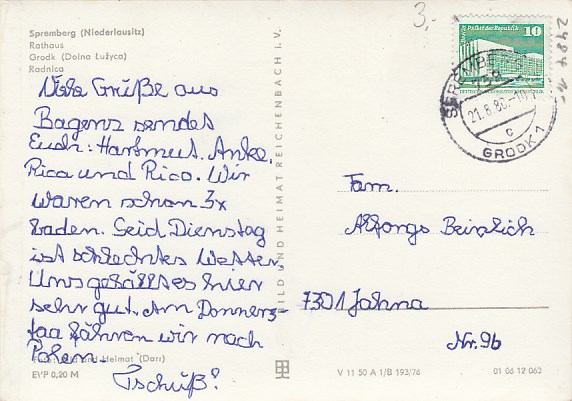 Spremberg (Niederlausitz)
Rathaus
Grodk (Dolna Łužyca)
Radnica
Viele Grüße aus
Bagenz sendes
Euch: Hartmut. Anke.
Rica und Rico. Wir
waren schon 3x
baden. Seid Dienstag
ist schlechtes Wetter
Uns gefällt es hier
sehr gut. Am Donners-
tag fahren wir nach
Polen.
Tschüß!
Bild und Heimat (Darr)
EVP 0,20 M
BILD UND HEIMAT REICHENBACH I. V.
V 11 50 A 1/B 193/76
01 06 12 062
3,-
Palast der Republik
10
SPREMBERG
759
21.6.86.-10
c
GRODK 1
Fam.
7301 Jahna
Nr. 9b